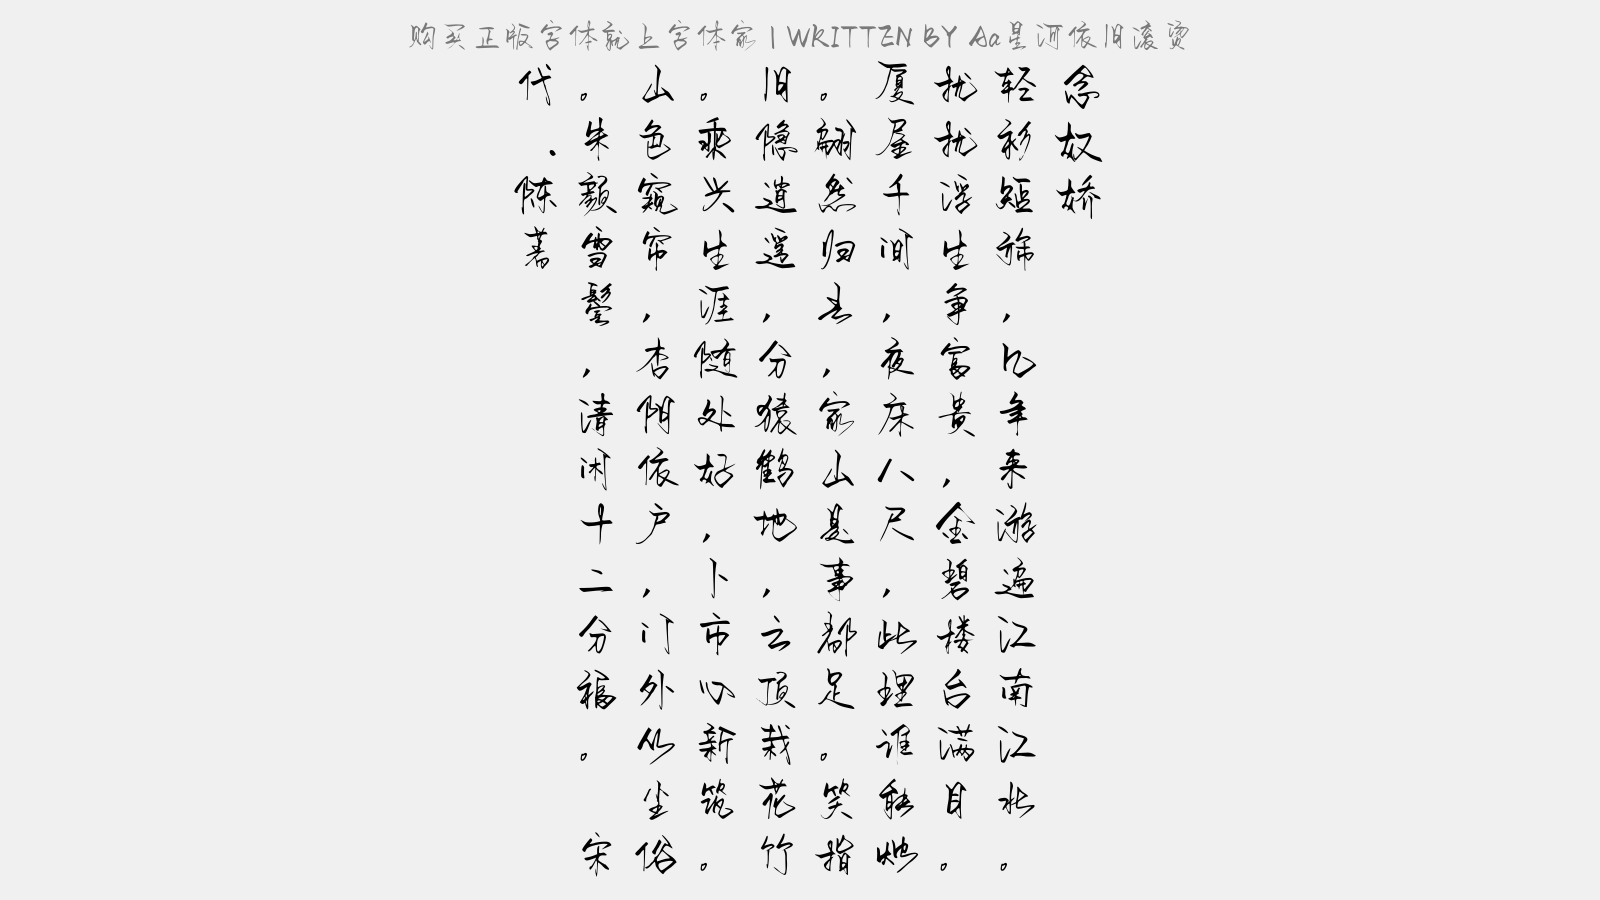 购买正版字体就上字体家 | WRITTEN BY Aa星河依旧滚烫
念奴娇
轻衫短旆，几年来游遍江南江北。
扰扰浮生争富贵，金碧楼台满目。
厦屋千间，夜床八尺，此理谁能烛
。翩然归去，家山是事都足。笑指
旧隐逍遥，分猿鹤地，云顶栽花竹
。乘兴生涯随处好，卜市心新筑。
山色窥帘，杏阴依户，门外从尘俗
。朱颜雪鬓，清闲十二分福。 宋
代．陈著